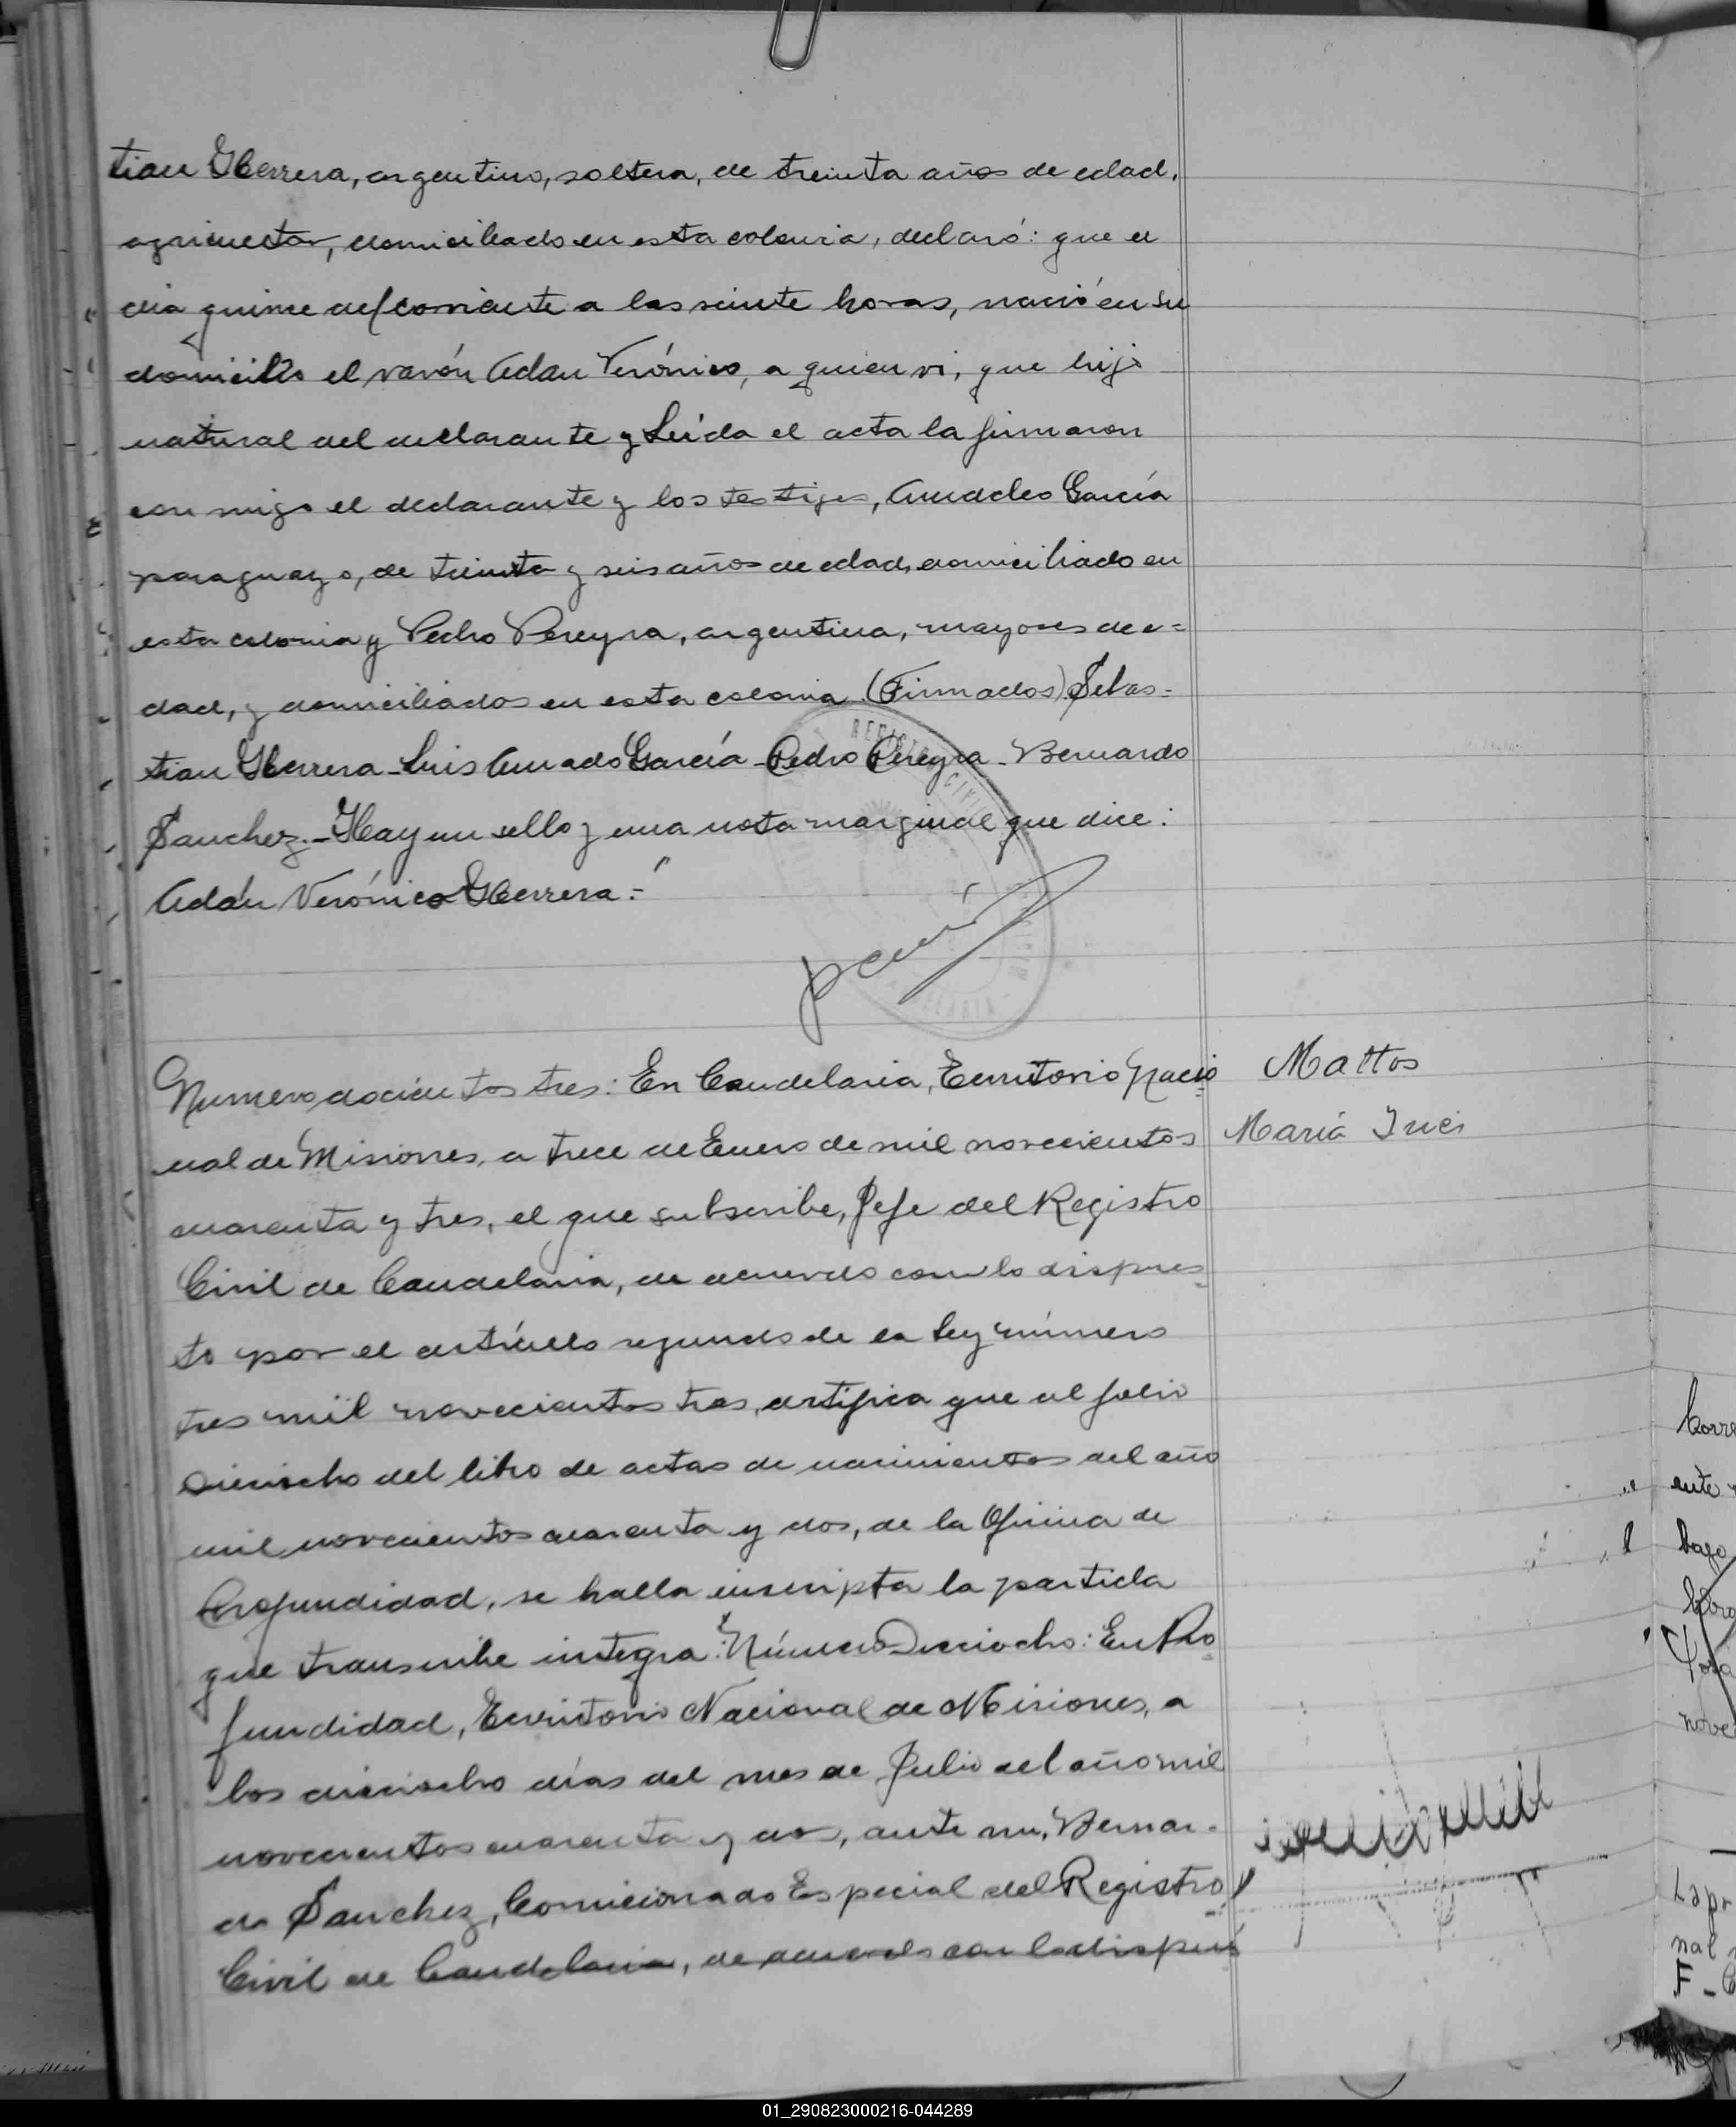 tian Herrera, argentino, soltero, de treinta años de edad,
agricultor, domiciliado en esta colonia, declaró: que el
día quince del corriente a las veinte horas, nació en su
domicilio el varón Adan Verónico, a quien vi, que hijo
natural del declarante y Leída el acta la firmaron
con migo el declarante y los testigos, Amadeo García
paraguayo, de treinta y seis años de edad, domiciliado en
esta colonia y Pedro Pereyra, argentino, mayores de e=
dad, y domiciliados en esta colonia (Firmados) Sebas=
tian Herrera - Luis Amado García - Pedro Pereyra - Bernardo
Sanchez. - Hay un sello y una nota marginal que dice:
Adán Verónico Herrera."
REGISTRO CIVIL
Numero docientos tres: En Candelaria, Territorio Nacio
Mattos
nal de Misiones, a trece de Enero de mil novecientos
María Inés
cuarenta y tres, el que subscribe, Jefe del Registro
Civil de Candelaria, de acuerdo con lo dispues
to por el artículo segundo de la ley número
tres mil novecientos tres, certifica que al folio
dieciocho del libro de actas de nacimientos del año
mil novecientos cuarenta y dos, de la Oficina de
Profundidad, se halla inscripta la partida
que transcribe integra: "Número Dieciocho: En Pro
fundidad, Territorio Nacional de Misiones, a
los dieciocho días del mes de Julio del año mil
novecientos cuarenta y dos, ante mi, Bernar-
do Sanchez, Comicionado Especial del Registro
Civil de Candelaria, de acuerdo con lo dispues
Corre
ante
bajo
libro
nove
Lapr
nal
F - C
01_290823000216-044289